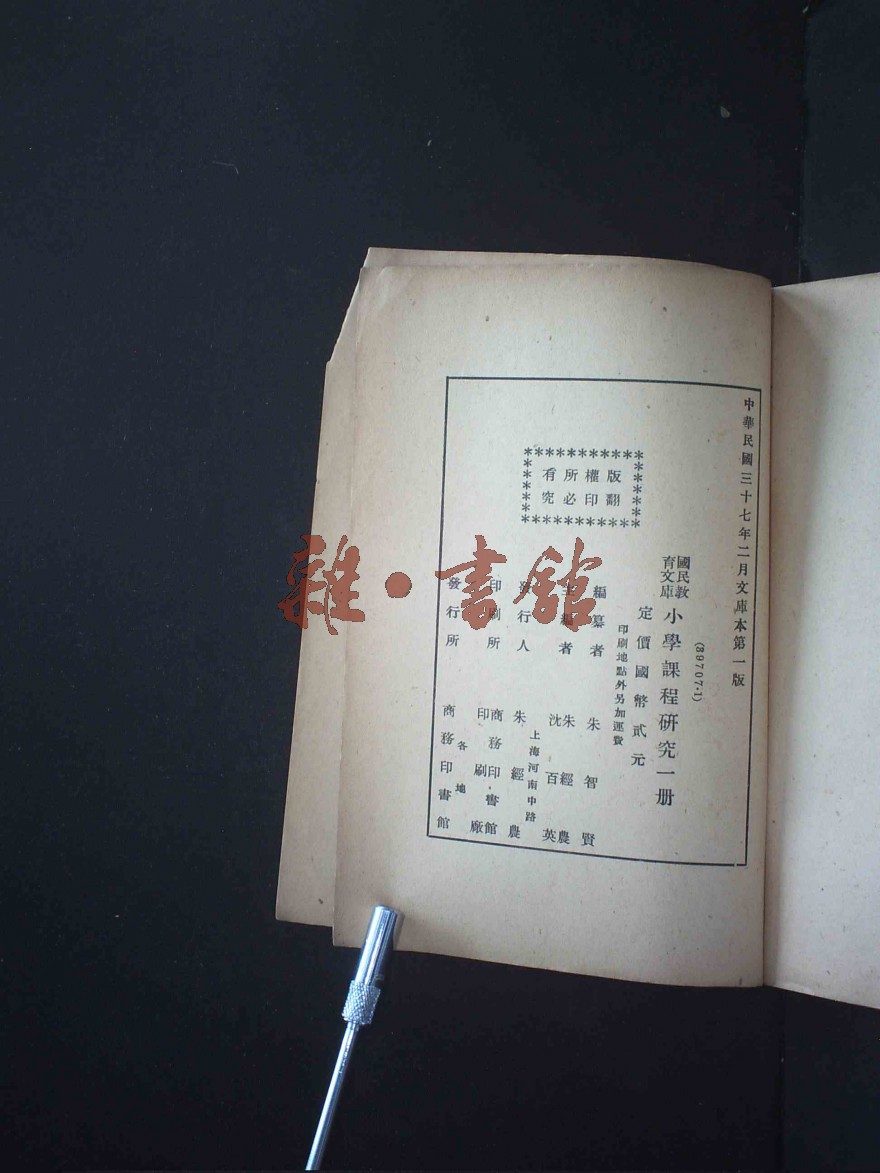 中華民國三十七年二月文庫本第一版
(39707·1)
國民教育文庫 小學課程研究一册
定價國幣貳元
印刷地點外另加運費
編纂者 朱智賢
主編者 朱經農 沈百英
上海河南中路
發行人 朱經農
印刷所 商務印書館印刷廠
各地
發行所 商務印書館
版權所有
翻印必究
雜·書館